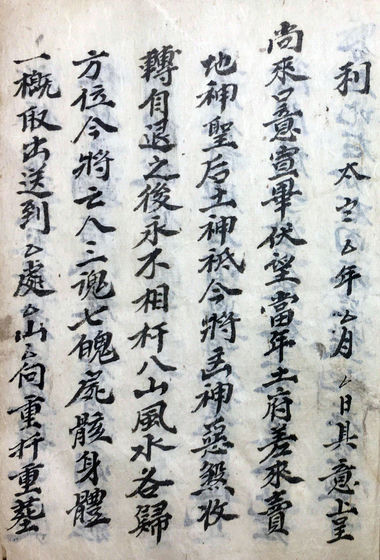 利 太厶年厶月厶日具意上呈
尚來口意宣畢伏望當年土府差來賣
地神聖后土神祗今將神惡煞收
轉自退之後永不相杆八山風水各歸
方位今將亡人三魂七魄屍骸身體
一概取出送到厶處厶山厶向重扦重塟